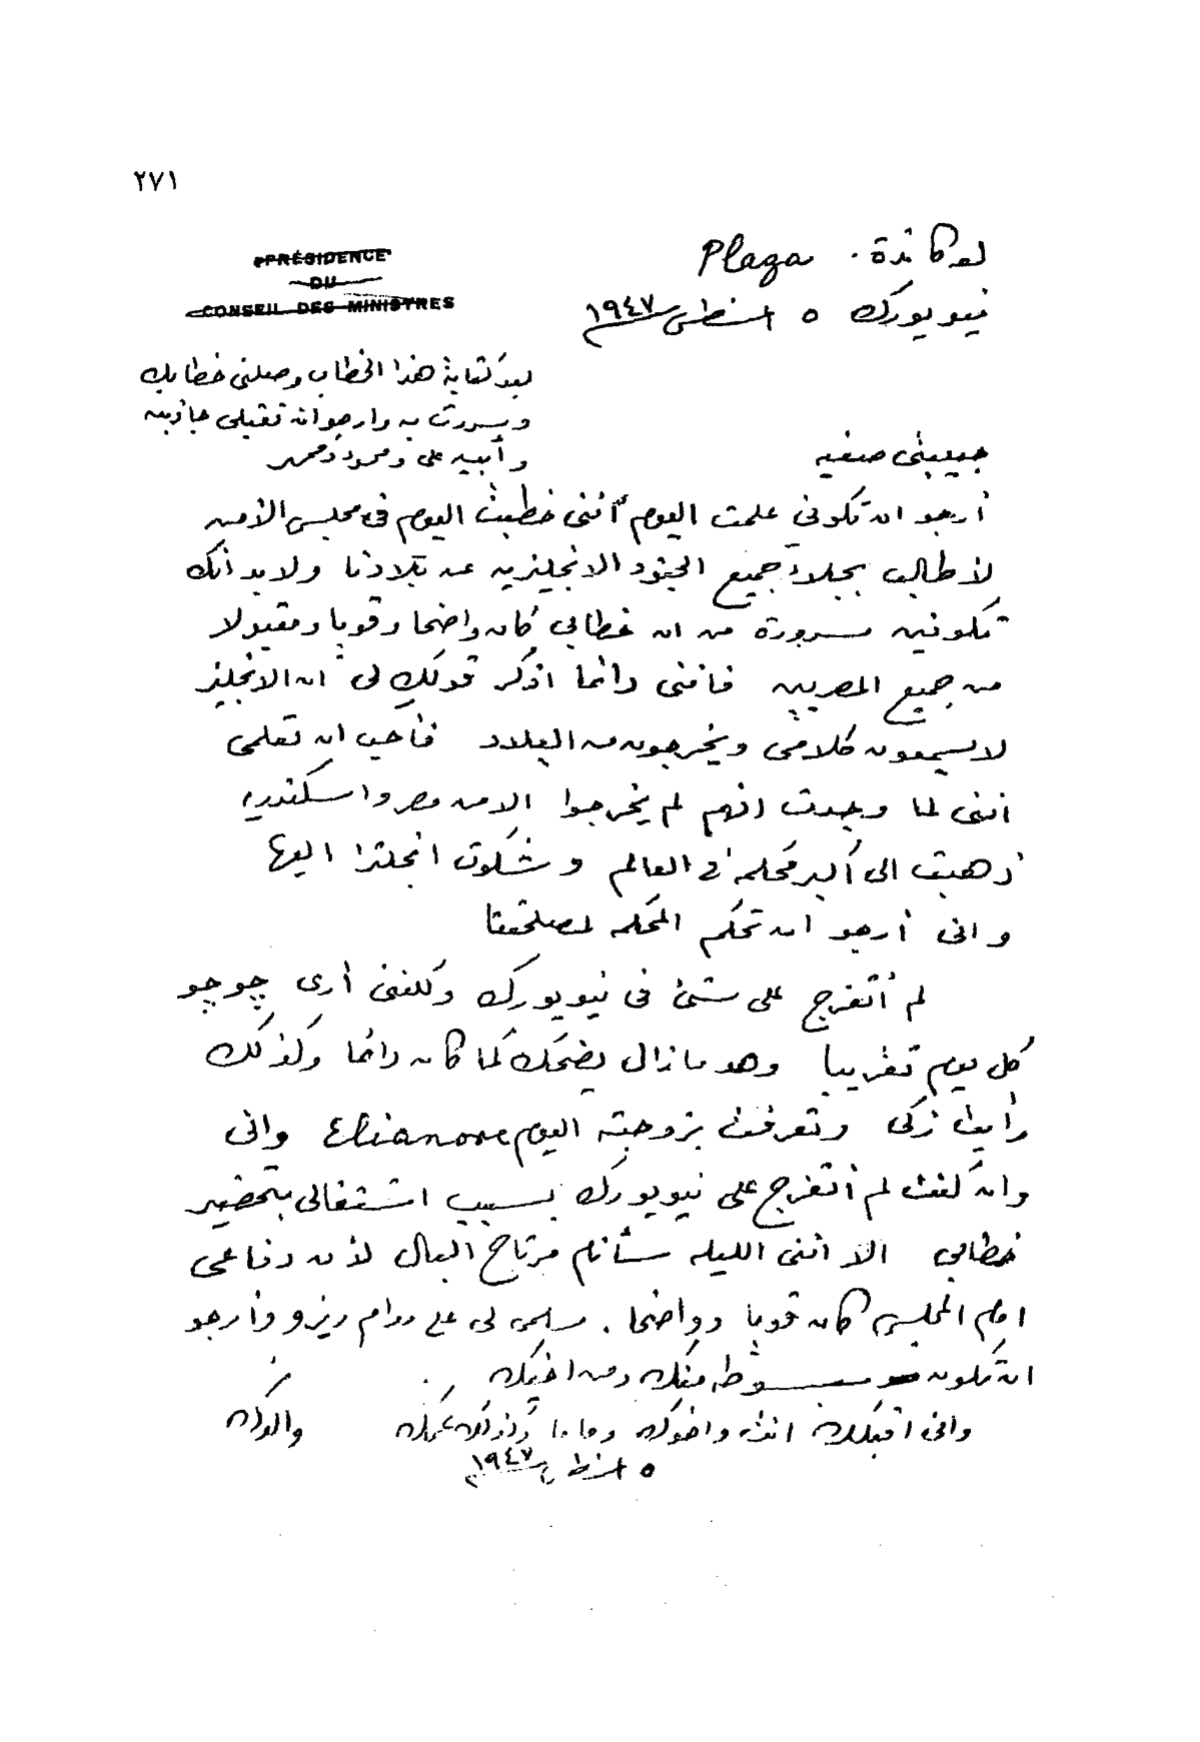 ٢٧١
PRÉSIDENCE
DU
CONSEIL DES MINISTRES
لوكاندة . Plaza
نيويورك ٥ اغسطس ١٩٤٧
بعد كتابة هذا الخطاب وصلني خطابك
وسررت به وارجو ان تقبلي جاذبيه
وأبيه على ومحمود
حبيبتى صفيه
أرجو ان تكونى علمت اليوم أننى خطبت اليوم فى مجلس الأمن
لأطالب بجلاء جميع الجنود الانجليزيه عن بلادنا ولا بد انك
تكونين مسرورة من ان خطابى كان واضحا وقويا ومقبولا
من جميع المصريين فاننى دائما اذكر قولك لى ان الانجليز
لا يسمعون كلامى ويخرجون من البلاد فأحب ان تعلمى
اننى لما وجدت انهم لم يخرجوا الا من مصر واسكندريه
ذهبت الى أكبر محكمه فى العالم وشكوت انجلترا اليها
وانى أرجو ان تحكم المحكمه لمصلحتنا
لم أتفرج على شئ فى نيويورك ولكننى أرى چوچو
كل يوم تقريبا وهو ما زال يضحك كما كان دائما وكذلك
رأيت زكى وتعرفت بزوجته اليوم Elianore وانى
وان كنت لم أتفرج على نيويورك بسبب اشتغالى بتحضير
خطابى الا اننى الليله سأنام مرتاح البال لأن دفاعى
امام المجلس كان قويا وواضحا . سلمى لى على مدام ريزو وأرجو
ان تكون مبسوطه منك ومن اخيك
وانى اقبلك انت واخوك وماما وكذلك عمك والدك
٥ اغسطس ١٩٤٧